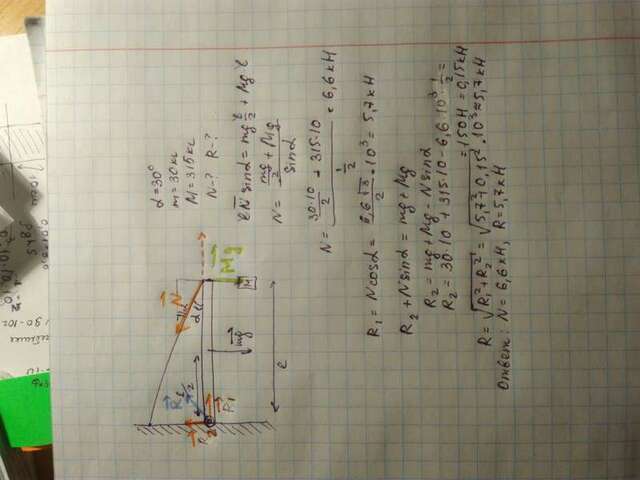 α=30°
m=30кг
M=315кг
N-? R-?
ℓN sinα = mg ℓ/2 + Mgℓ
N = (mg/2 + Mg)/sinα
N = (30·10/2 + 315·10)/(1/2) = 6,6кН
R₁ = N cosα = 6,6√3/2 · 10³ = 5,7кН
R₂ + N sinα = mg + Mg
R₂ = mg + Mg - N sinα
R₂ = 30·10 + 315·10 - 6,6·10³·1/2 =
= 150Н = 0,15кН
R = √(R₁² + R₂²) = √(5,7² + 0,15²) · 10³ ≈ 5,7кН
Ответ: N = 6,6кН, R = 5,7кН
N
α
Mg
M
mg
ℓ/2
ℓ
R
R₁
R₂